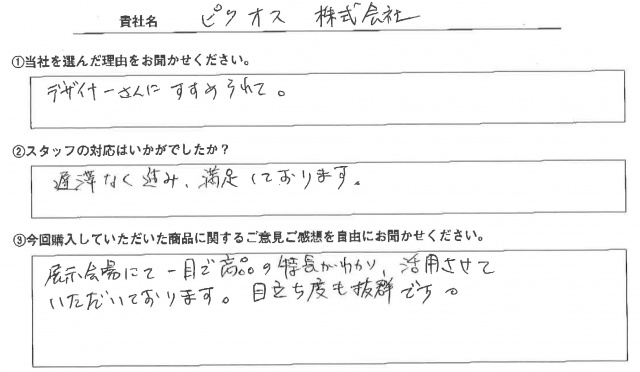 貴社名 ピクオス 株式会社
①当社を選んだ理由をお聞かせください。
デザイナーさんにすすめられて。
②スタッフの対応はいかがでしたか？
遅滞なく進み、満足しております。
③今回購入していただいた商品に関するご意見ご感想を自由にお聞かせください。
展示会場にて一目で商品の特長がわかり、活用させて
いただいております。目立ち度も抜群です。